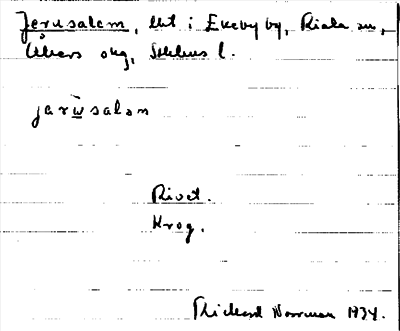 Jerusalem, lht i Ekeby by, Riala sn,
Åkers skg, Sthlms l.
jarusalam
Rivet.
Krog.
Rickard Norrman 1934.